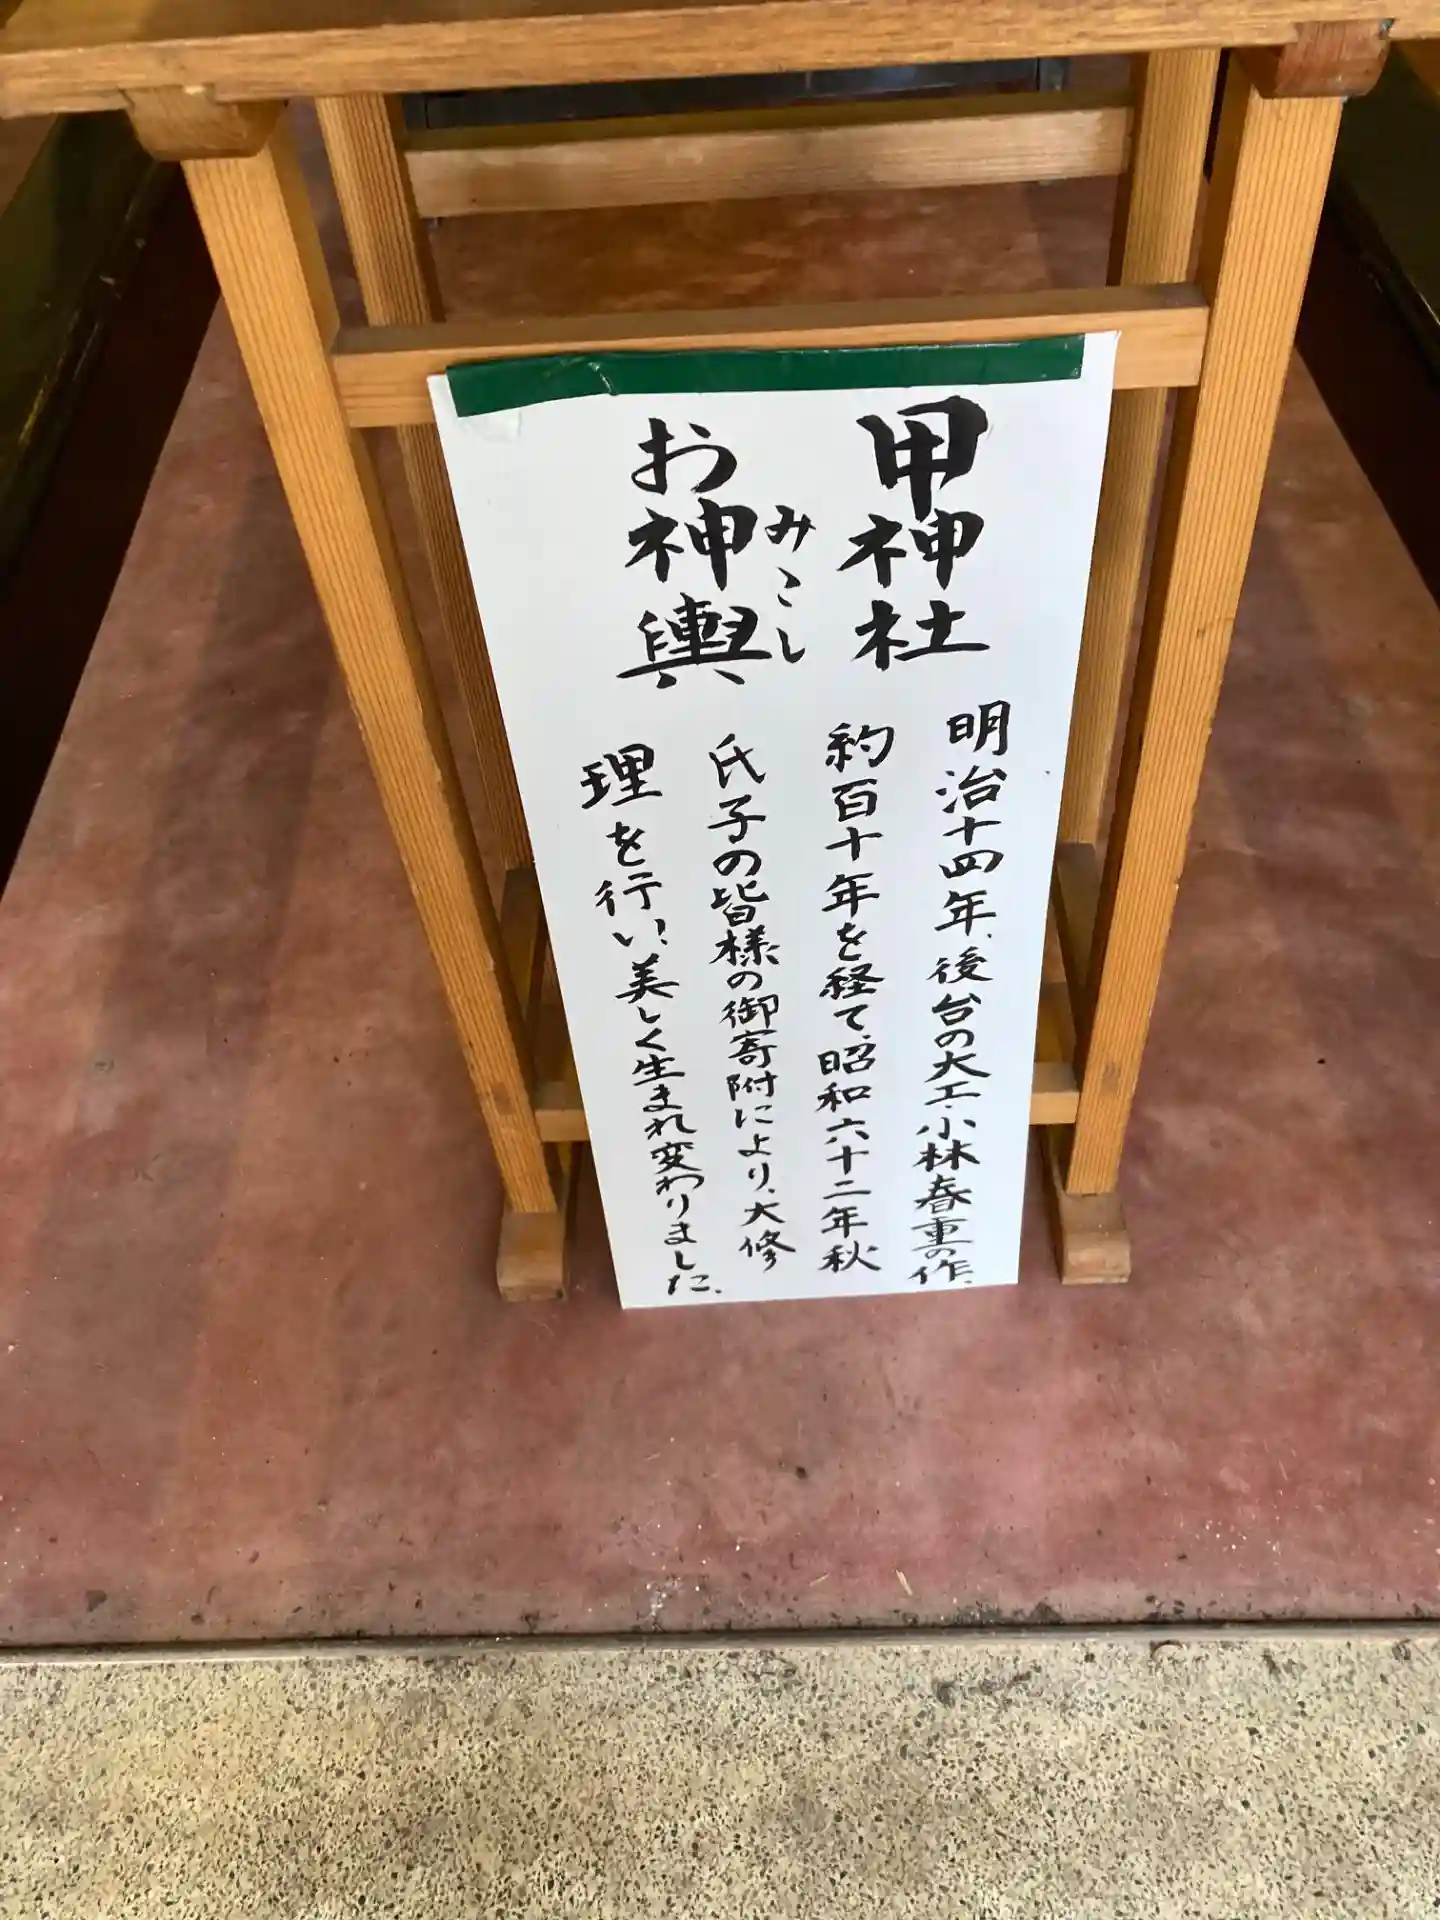 甲神社
お神輿
みこし
明治十四年、後台の大工・小林春重の作、
約百十年を経て、昭和六十二年秋
氏子の皆様の御寄附により、大修
理を行い、美しく生まれ変わりました。